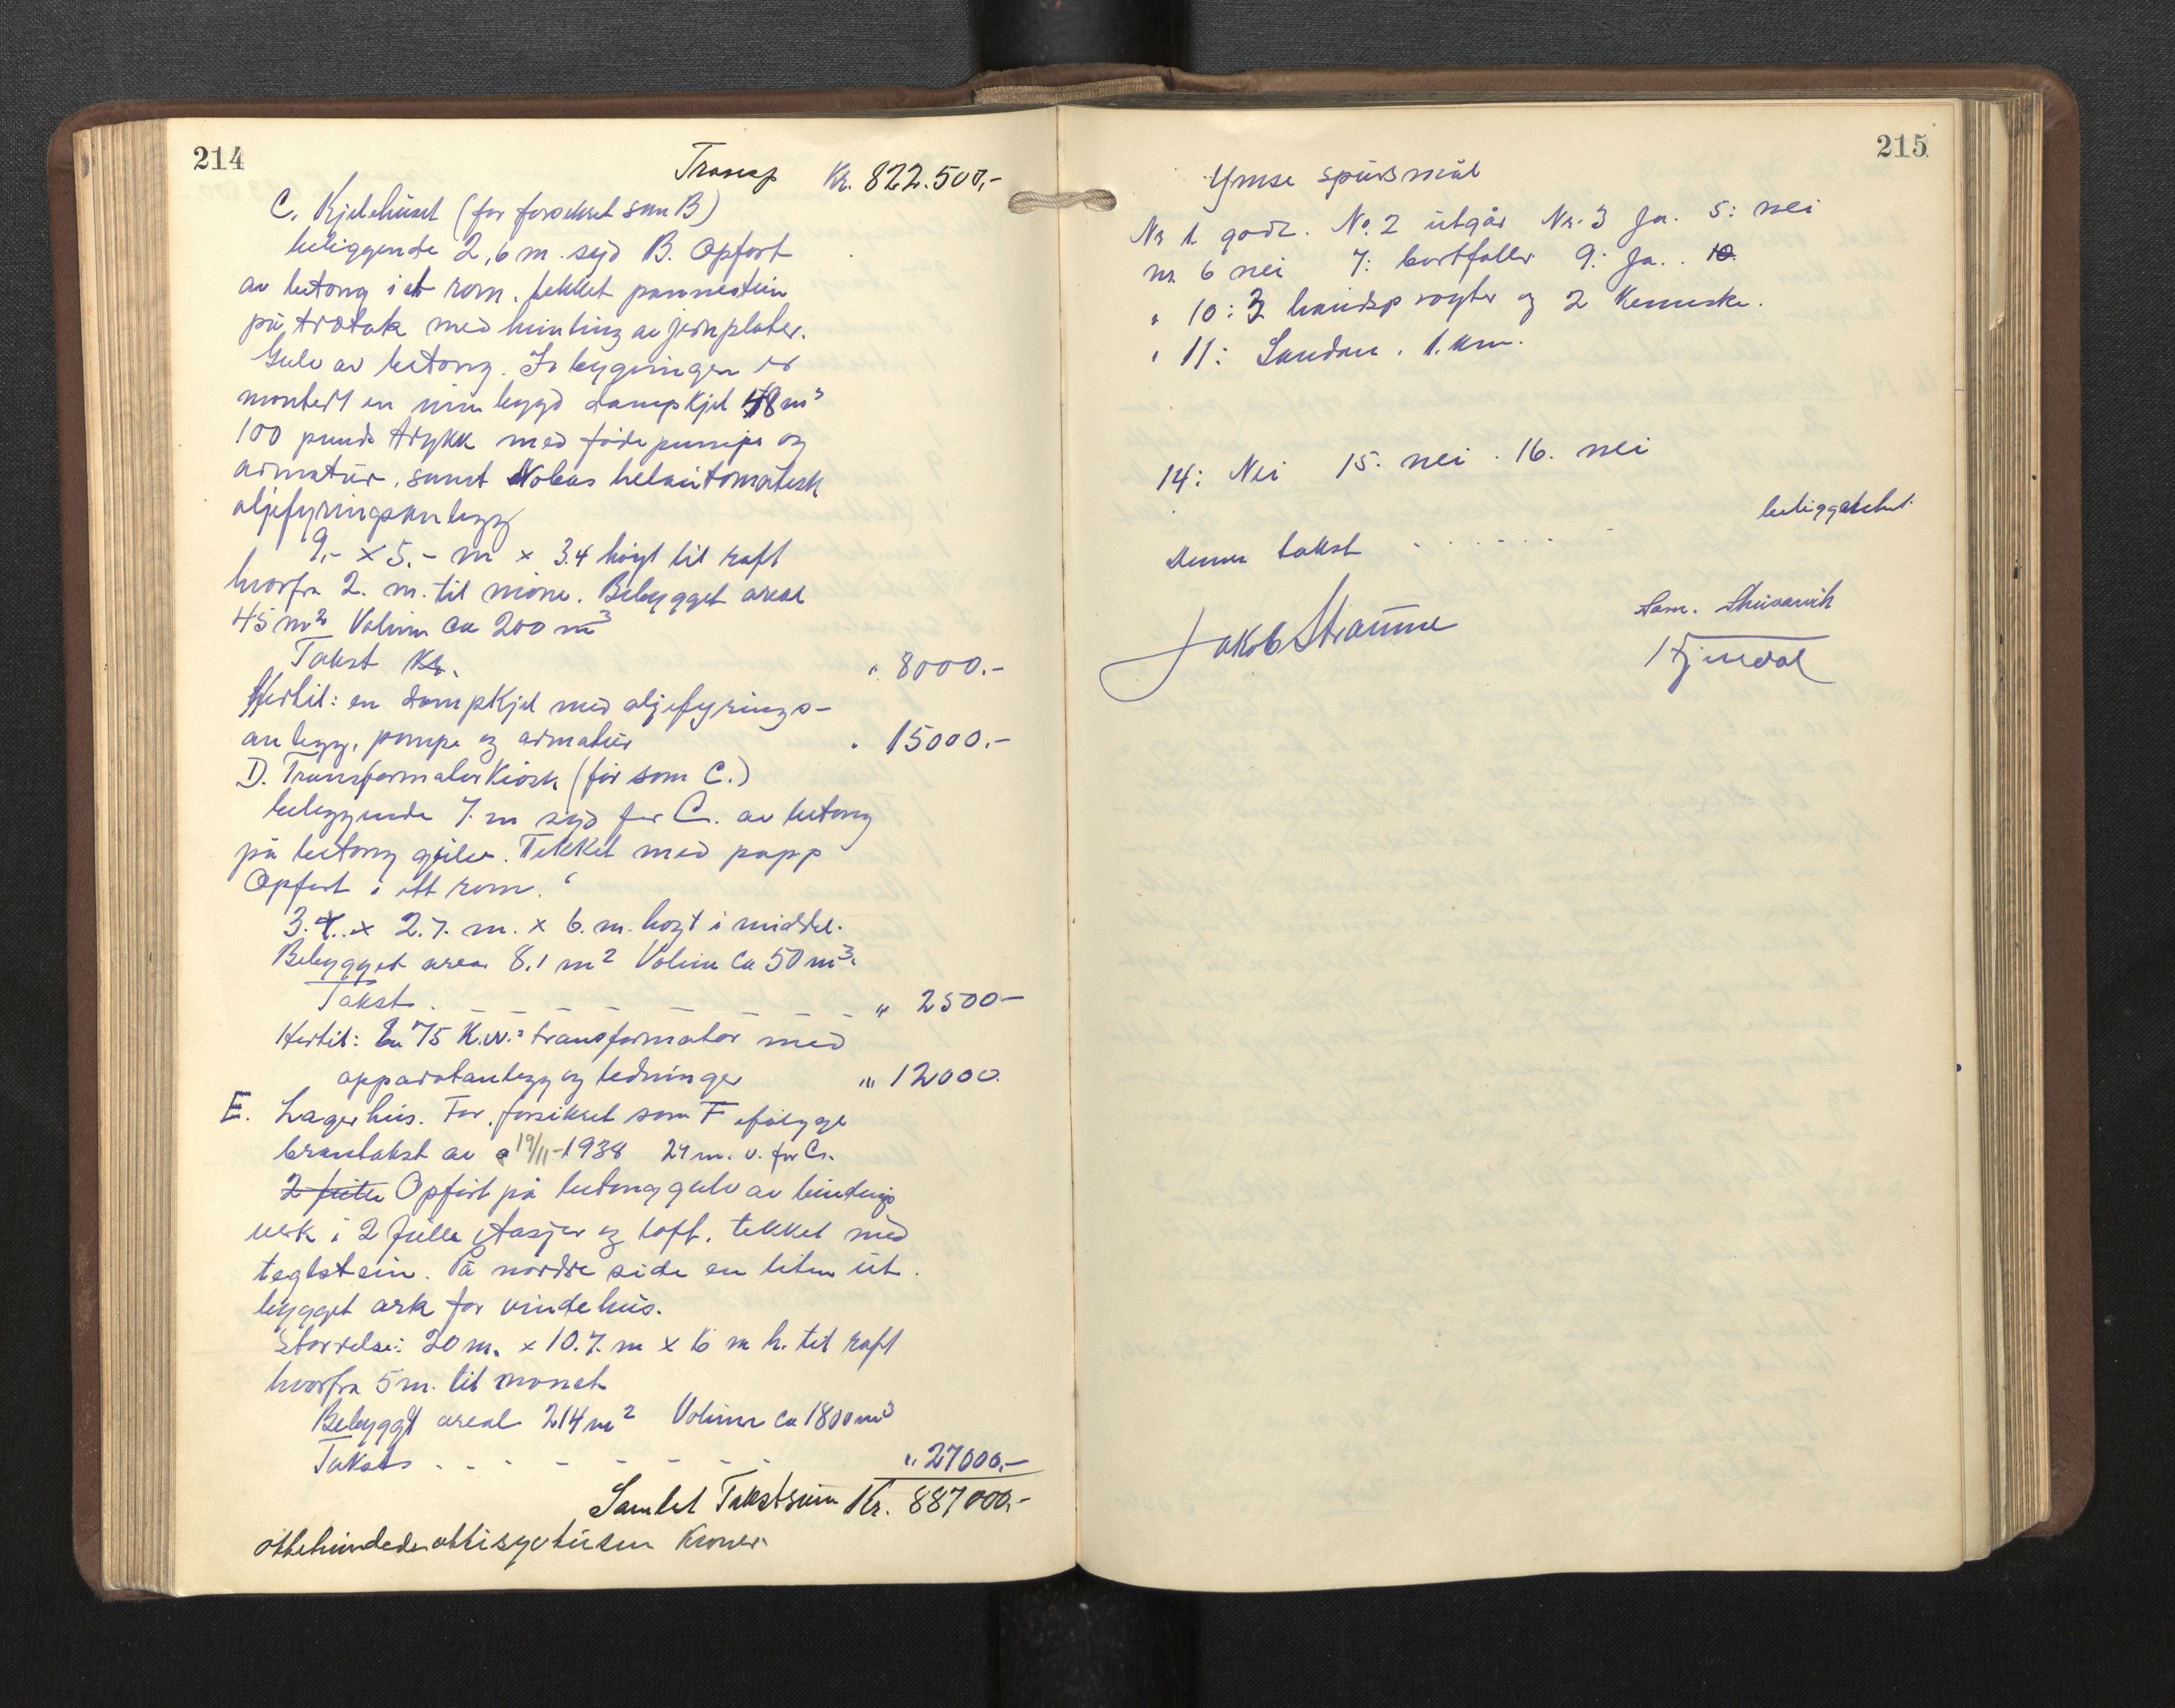 214
Transp Kr. 822.500,-
C. Kjelehuset (før forsikret som B)
beliggende 2,6 m. syd B. Opført
av betong i et rom, tekket pannestein
på tretak med himling av jernplater.
Gulv av betong. I bygningen er
montert en ny bygd dampkjel 48 m³
100 punds trykk med fødepumpe og
armatur, samt helautomatisk
oljefyringsanlegg
9,- x 5,- m x 3.4 høyt til raft
hvorfra 2. m. til møne. Bebygget areal
45 m² Volum ca 200 m³
Takst Kr. " 8000.-
Hertil: en dampkjel med oljefyrings-
anlegg, pumpe og armatur " 15000.-
D. Transformatorkiosk (før som C.)
beliggende 7. m syd for C. av betong
på betong gulv. Tekket med papp
Opført i ett rom.
3. x 2.7. m. x 6. m. høyt i middel.
Bebygget areal 8,1 m² Volum ca 50 m³.
Takst " 2500-
Hertil: En 75 K.W. transformator med
apparatanlegg og ledninger " 12000.
E. Lagerhus. Før forsikret som F ifølge
branntakst av 19/11-1938 24 m. v. for C.
2 fulle Opført på betonggulv av bindings
verk i 2 fulle etasjer og loft, tekket med
teglstein. På nordre side en liten ut
bygget ark for vindehus.
Størrelse: 20 m. x 10.7. m x 6 m h. til raft
hvorfra 5 m. til mønet
Bebygget areal 214 m² Volum ca 1800 m³
Takst " 27000,-
Samlet Takstsum Kr. 887000,-
ottehundredeottisyvtusen Kroner.
215
Ymse spursmål
Nr 1 godt. No. 2 utgår Nr. 3 Ja. 5: nei
nr. 6 nei 7: bortfaller 9: Ja.. 10.
" 10: 3 håndsprøyter og 2 Kemiske.
" 11: 1. km.
14: Nei 15. nei. 16. nei
Denne takst . . . . . .
Jakob Straume
Sam.